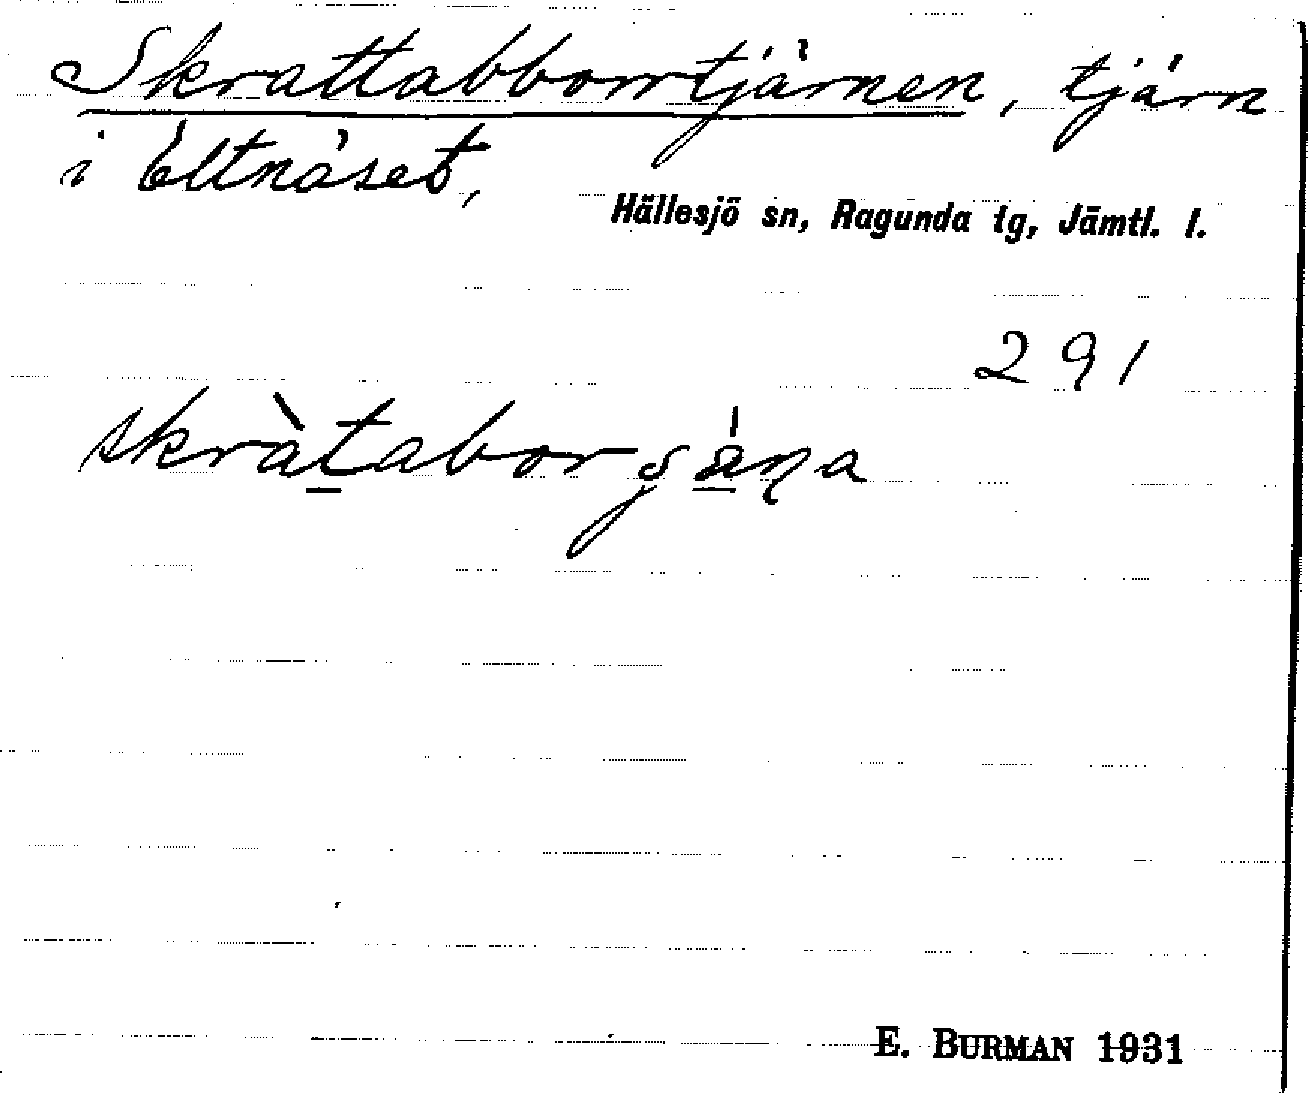 Skrattabborrtjärnen, tjärn
i Eltnäset,
Hällesjö sn, Ragunda tg, Jämtl. l.
291
E. BURMAN 1931